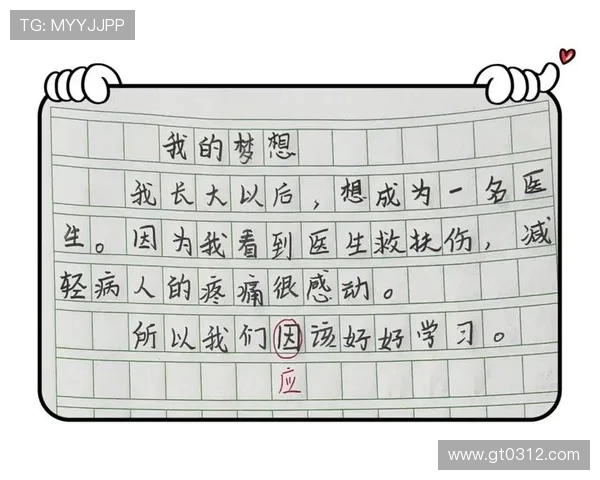 TG: MYYJJPP
我的梦想
我长大以后，想成为一名医
生。因为我看到医生救扶伤，减
轻病人的疼痛很感动。
所以我们因该好好学习。
应
www.gt0312.com